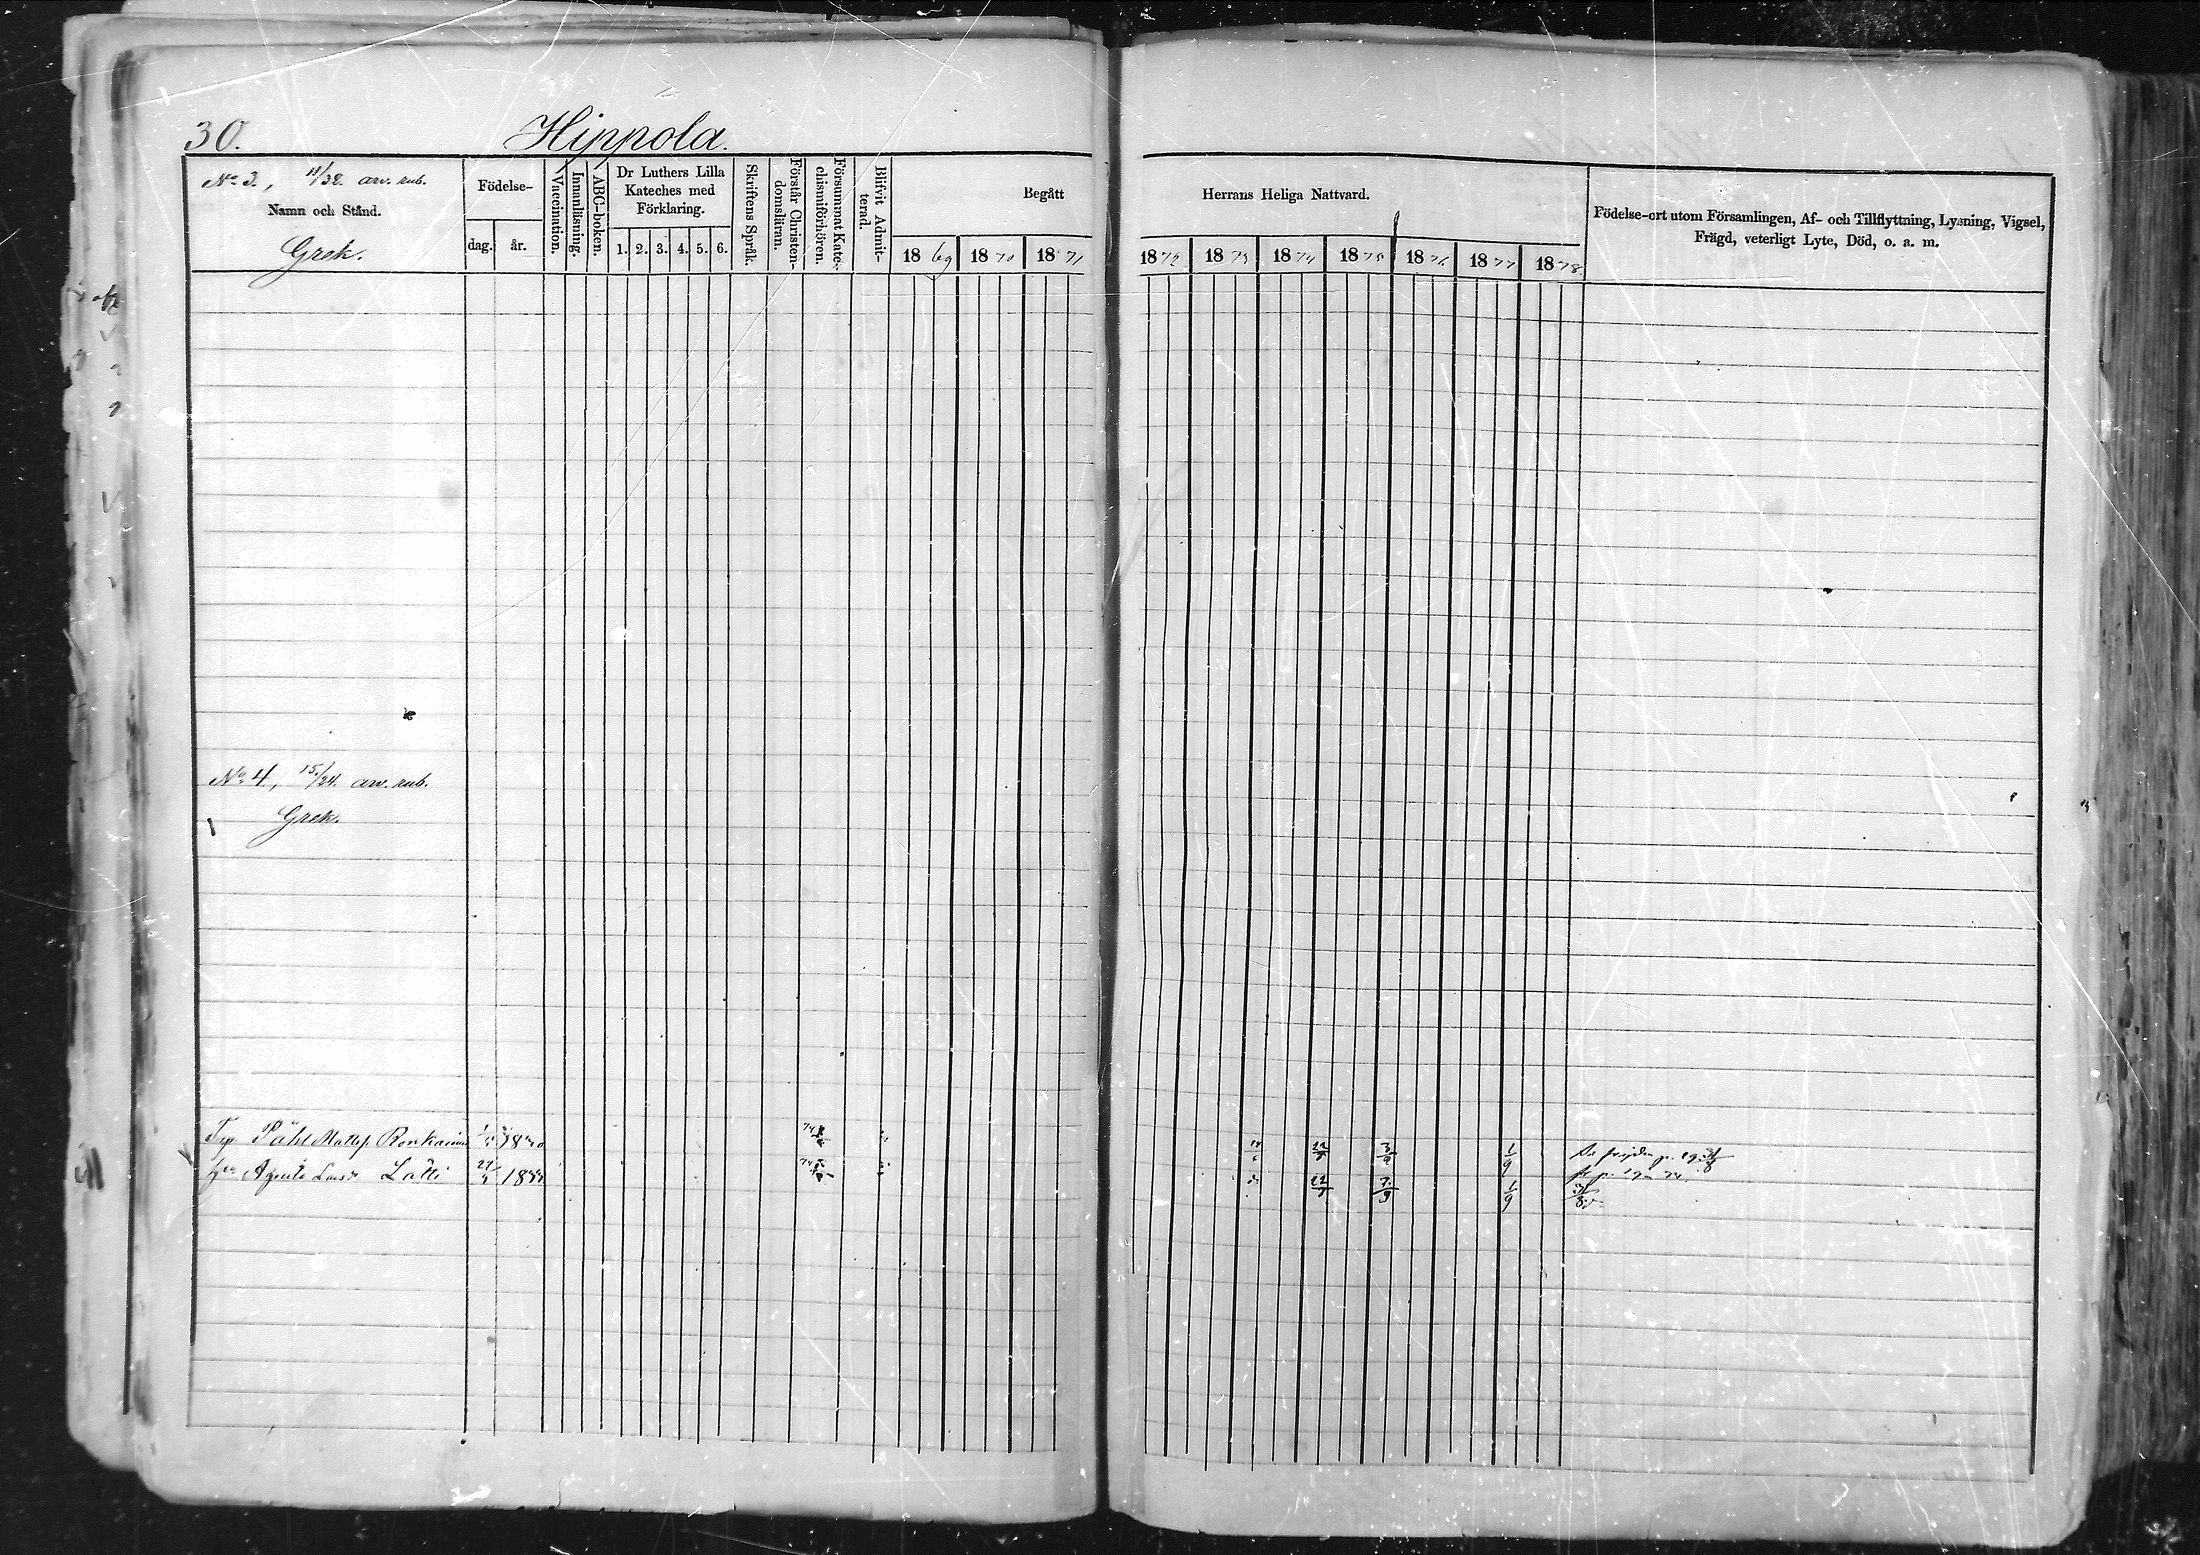 30. Hippola.
No 3., 11/32. arv. rub.
Namn och Stånd.
Grek.
Födelse-
dag. år.
Vaccination.
Innanläsning.
ABC-boken.
Dr Luthers Lilla
Kateches med
Förklaring.
1. 2. 3. 4. 5. 6.
Skriftens Språk.
Förstår Christen-
domsläran.
Försummat Kate-
chismiförhören.
Blifvit Admit-
terad.
Begått
1869 1870 1871
Herrans Heliga Nattvard.
1872 1873 1874 1875 1876 1877 1878.
Födelse-ort utom Församlingen, Af- och Tillflyttning, Lysning, Vigsel,
Frägd, veterligt Lyte, Död, o. a. m.
No 4, 15/34. arv. rub.
Grek.
Påhl Matts. Ronkainen
Lätti
22/9 3/9 1/9
22/9 1/9